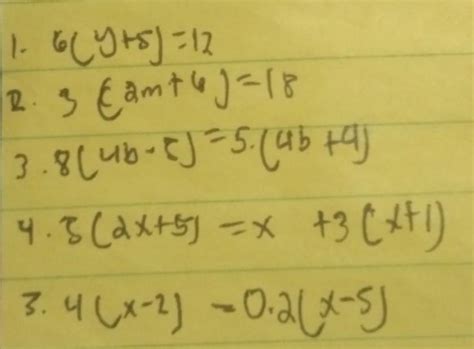 1. 6(y+5)=12
2. 3(2m+6)=18
3. 8(4b-5)=5.(4b+9)
4. 5(2x+5) = x +3(x+1)
3. 4(x-2) -0.2(x-5)